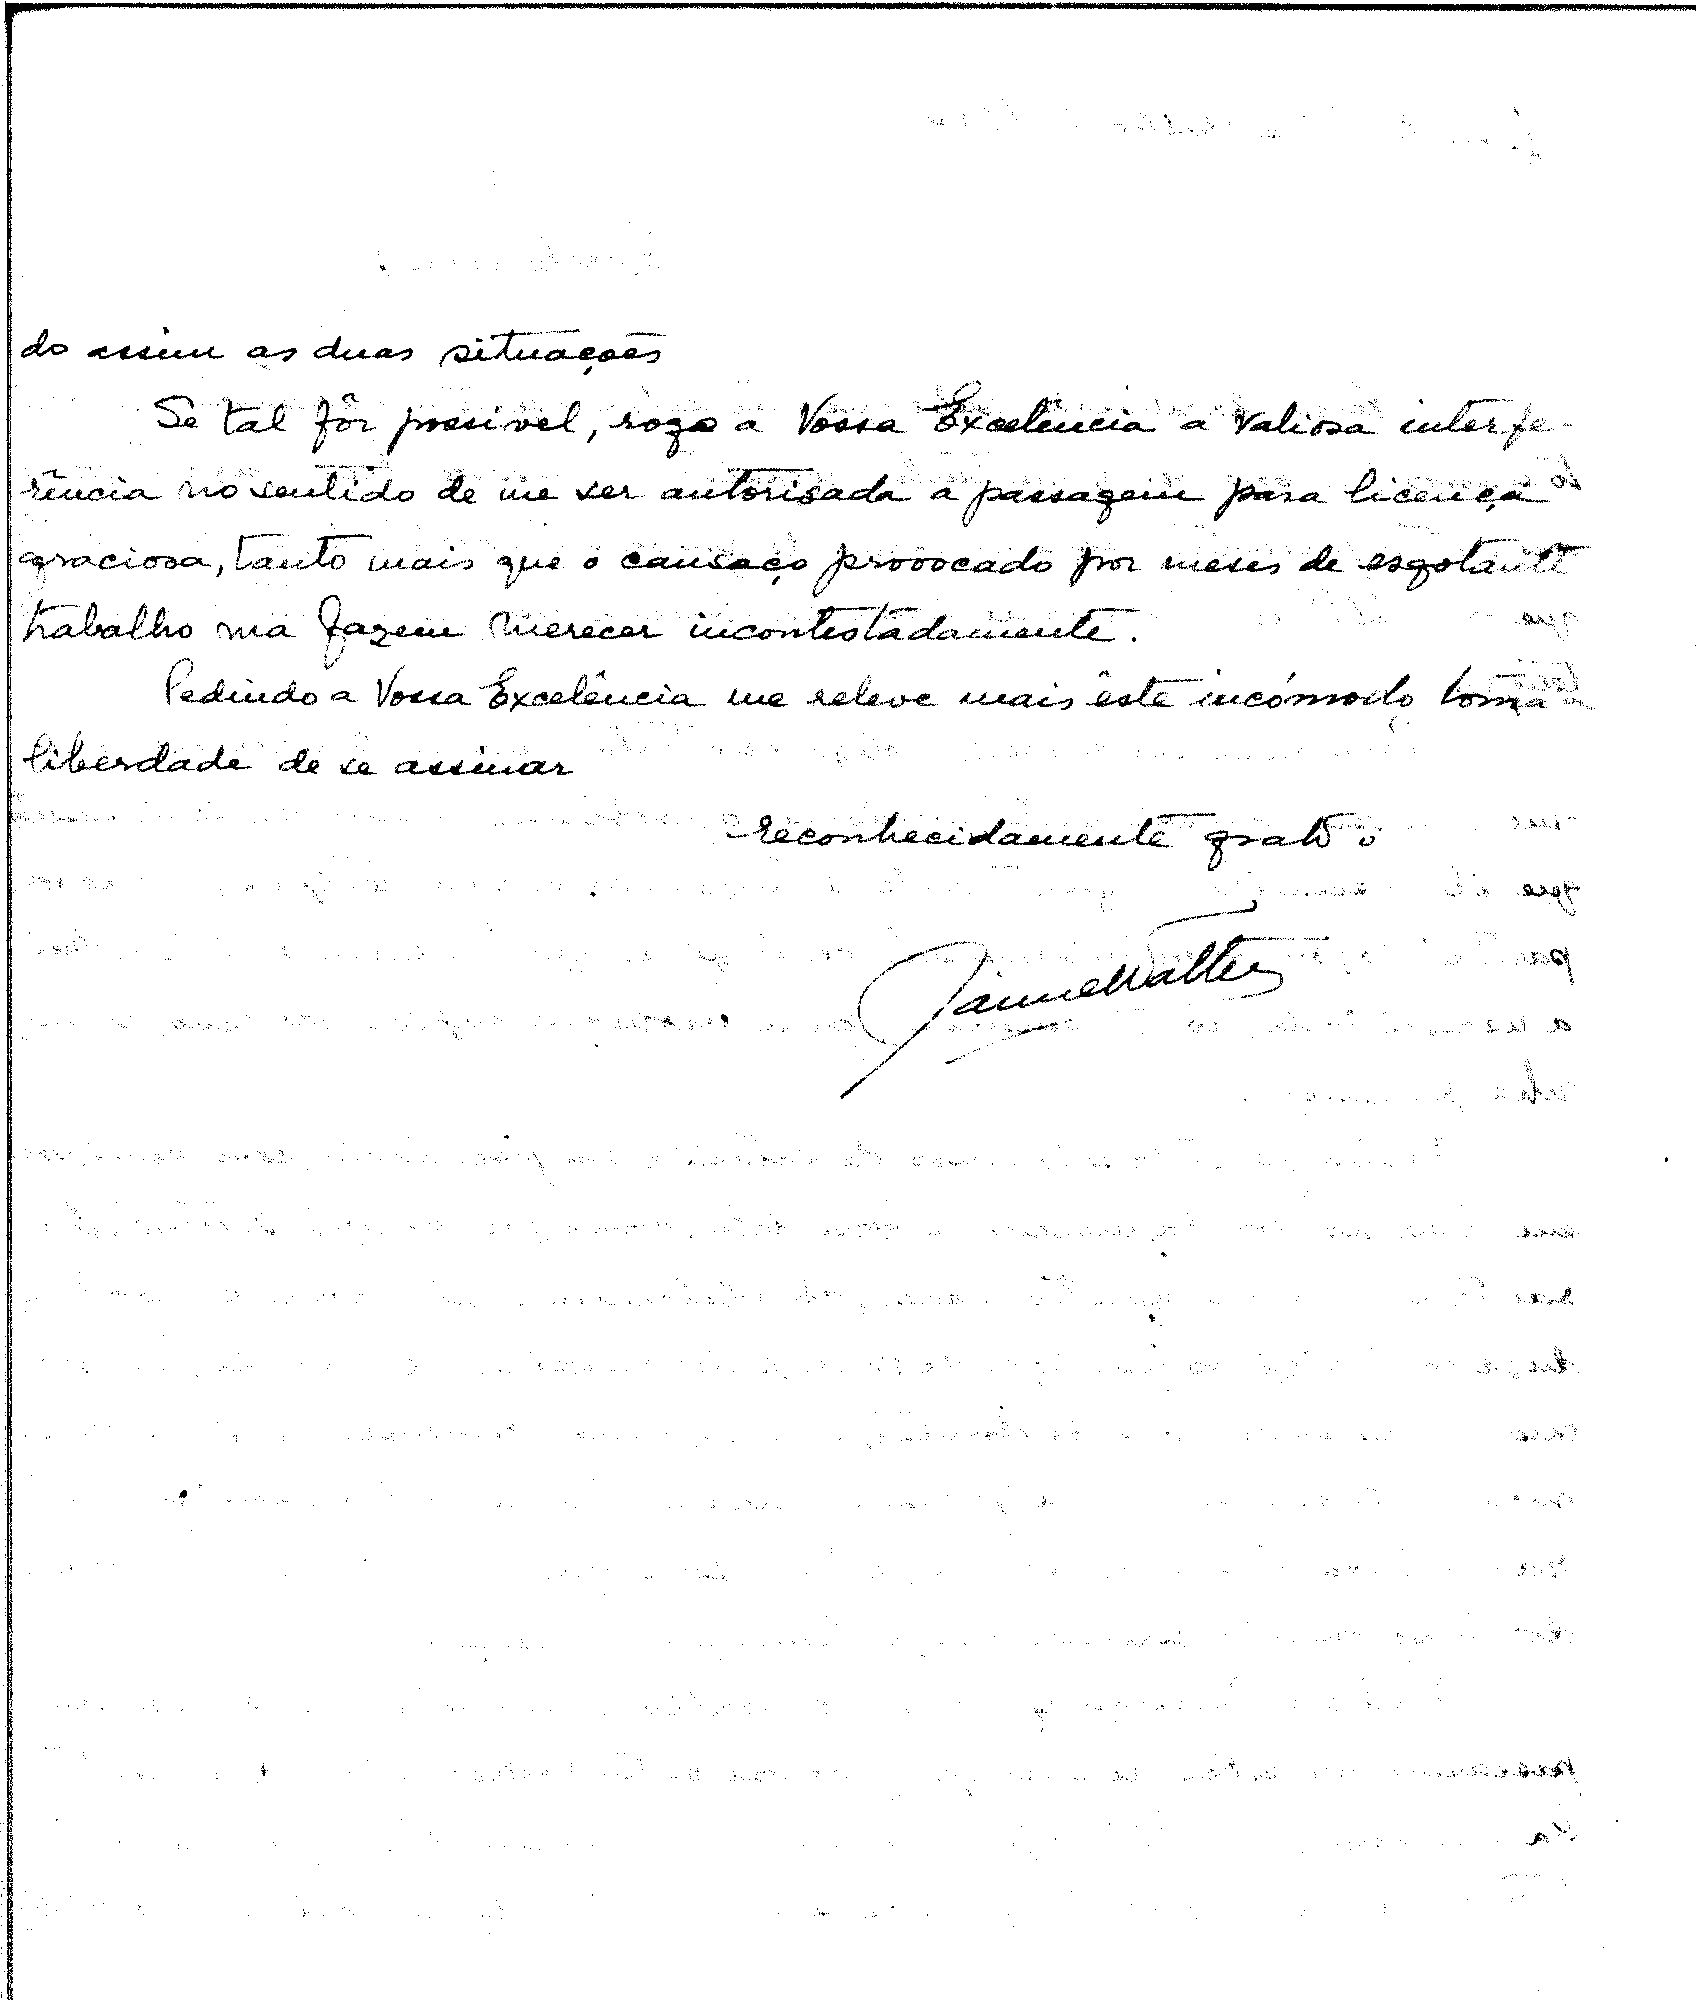 do assim as duas situações
Se tal fôr possivel, rogo a Vossa Excelência a valiosa interfe-
rência no sentido de me ser autorisada a passagem para licença
graciosa, tanto mais que o cansaço provocado por meses de esgotante
trabalho ma fazem merecer incontestadamente.
Pedindo a Vossa Excelência me releve mais êste incómodo toma
liberdade de se assinar
reconhecidamente grato o
Jaime Walter